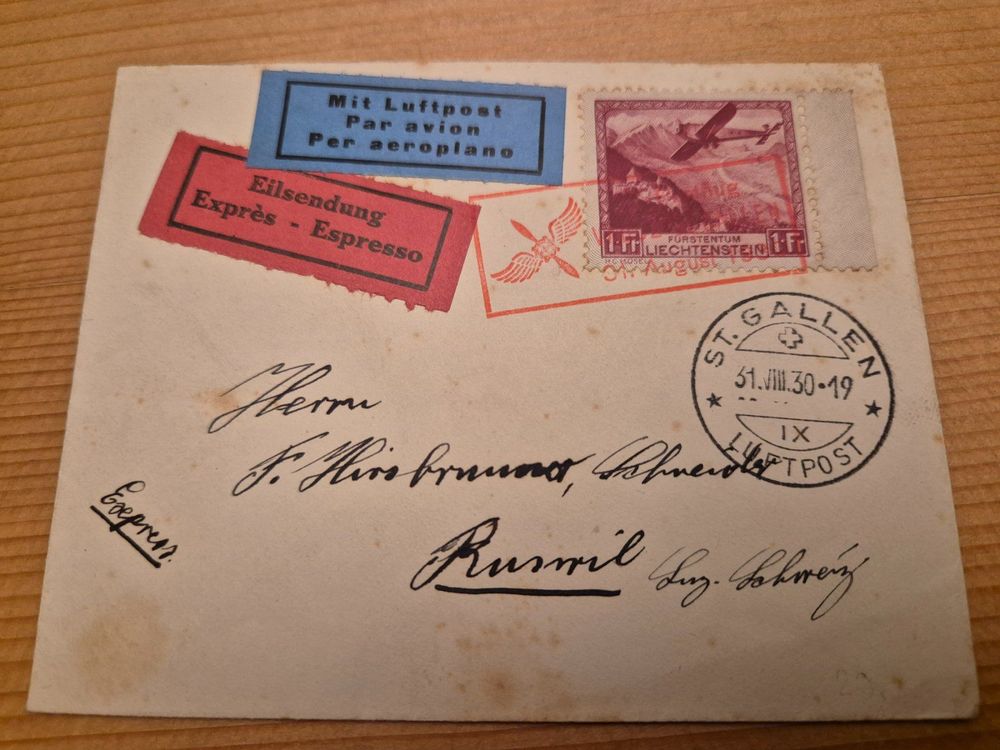 Mit Luftpost
Par avion
Per aeroplano
Eilsendung
Exprès - Espresso
1·Fr
FÜRSTENTUM
LIECHTENSTEIN
1·Fr
31. August
ST. GALLEN
31.VIII.30·19
IX
LUFTPOST
Herrn
F. Hirsbrunner, Schneider
Express.
Ruswil Luz. Schweiz